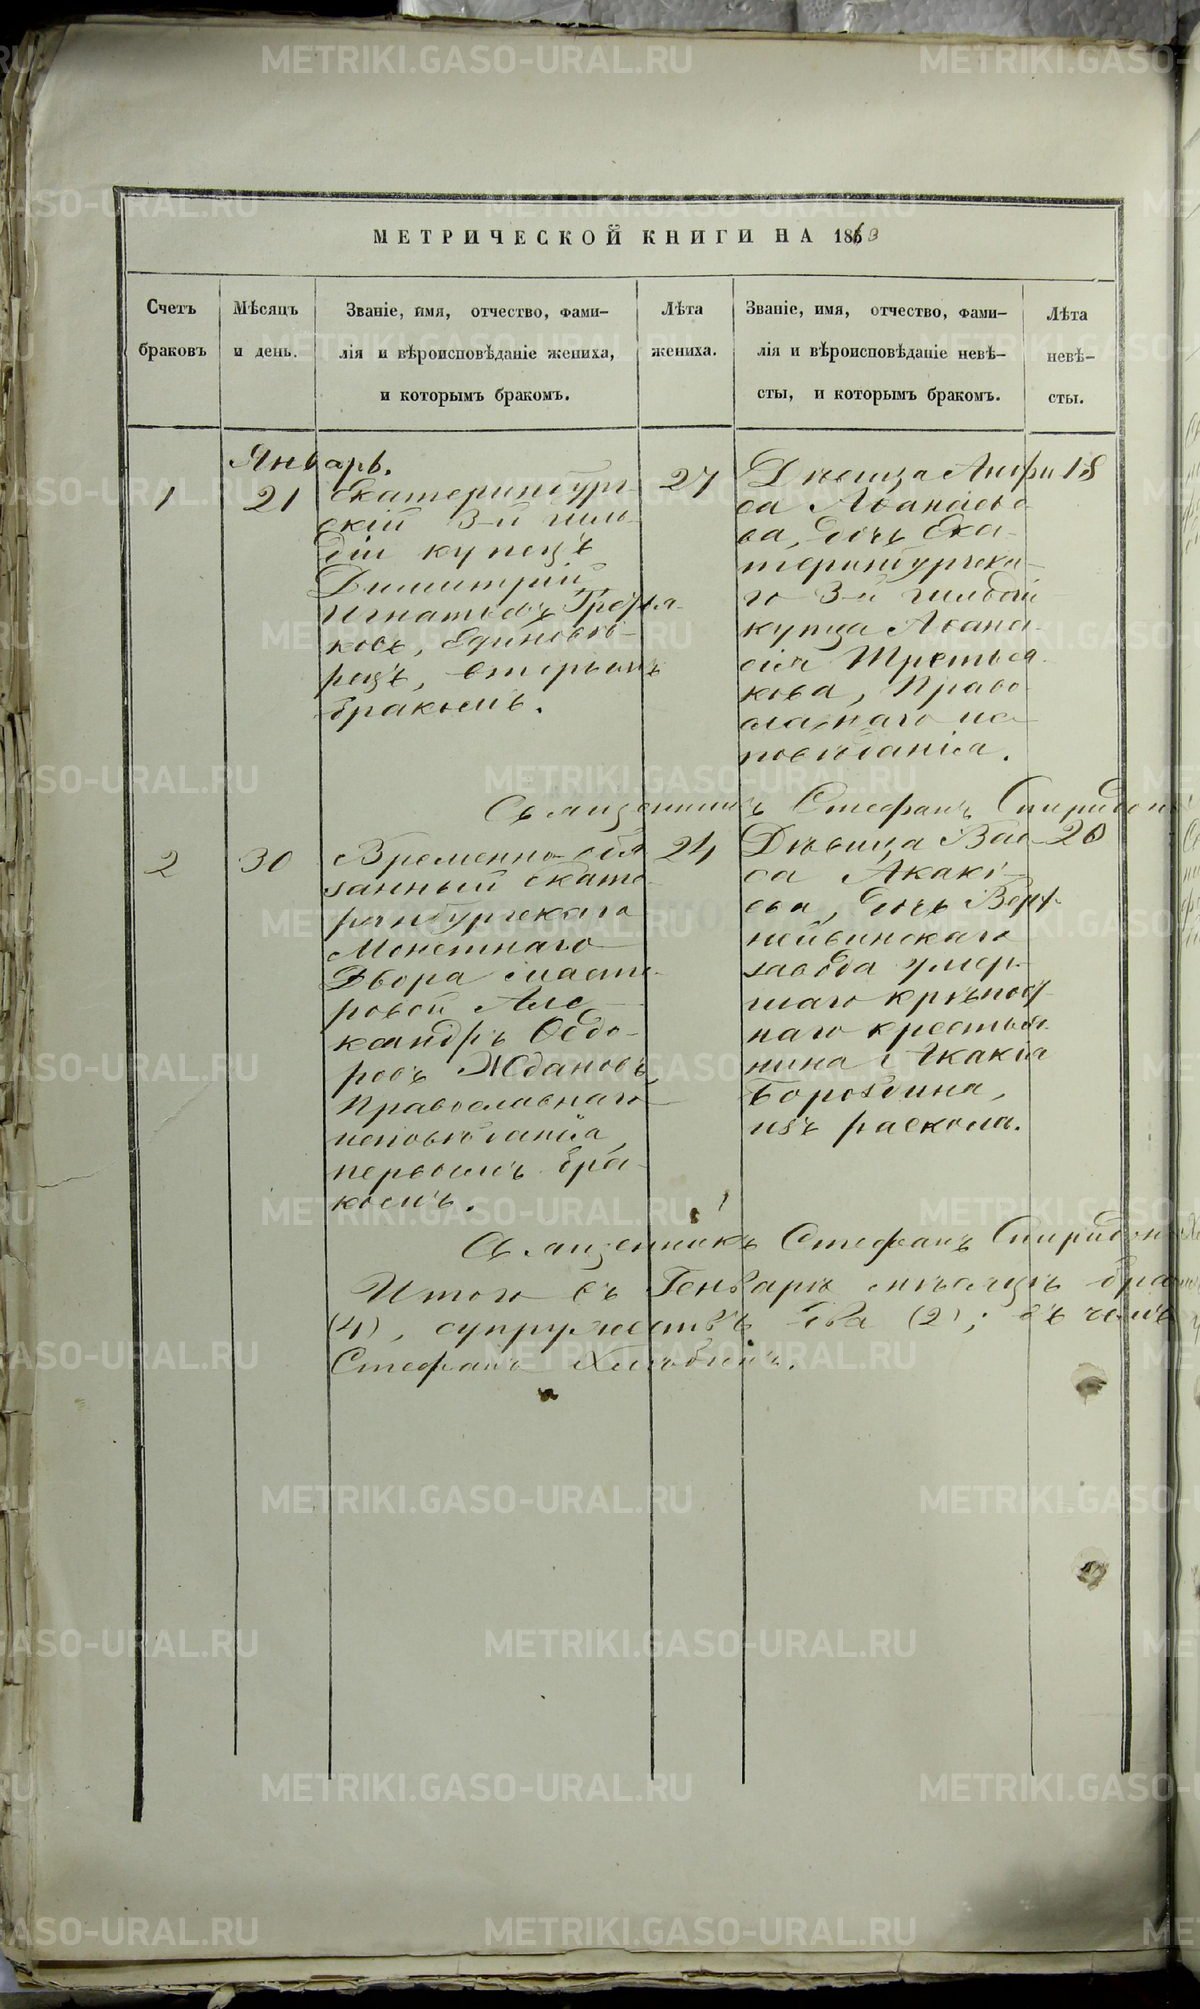 МЕТРИЧЕСКОЙ КНИГИ НА 1863
Счетъ браковъ
Мѣсяцъ и день.
Званіе, имя, отчество, фами-
лія и вѣроисповѣданіе жениха,
и которымъ бракомъ.
Лѣта жениха.
Званіе, имя, отчество, фами-
лія и вѣроисповѣданіе невѣ-
сты, и которымъ бракомъ.
Лѣта невѣ-
сты.
Январь.
1
21
Екатеринбург-
скій 3-й гиль-
діи купецъ
Димитрій
Игнатьевъ
ковъ, Единовѣ-
рецъ, вторымъ
бракомъ.
27
Дѣвица Анфи
са Аѳанасье
ва, дочь Ека-
теринбургска-
го 3-й гильдіи
купца Аѳана-
сія Третья-
кова, Право-
славнаго ис-
повѣданія.
18
Священникъ Стефанъ Спиридон
2
30
Временно-обя
занный Екате-
ринбургскаго
Монетнаго
Двора масте-
ровой Але-
ксандръ Ѳедо-
ровъ Ждановъ,
Православнаго
исповѣданія,
первымъ бра-
комъ.
24
Дѣвица Вас-
са Акакі-
ева, дочь Верх-
нейвинскаго
завода умер-
шаго крѣпост-
наго крестья-
нина Акакія
Бороздина,
изъ раскола.
20
Священникъ Стефанъ Спиридон
Итого въ Генварѣ мѣсяцѣ бра
(4), супружествъ два (2); въ чемъ
Стефанъ Хлѣбинъ.
METRIKI.GASO-URAL.RU